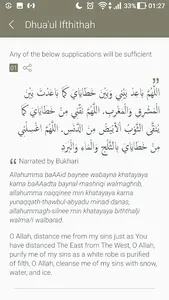 01:27
Dhua'ul Ifthithah
Any of the below supplications will be sufficient
01
اللَّهُمَّ بَاعِدْ بَيْنِي وَبَيْنَ خَطَايَايَ كَمَا بَاعَدْتَ بَيْنَ
الْمَشْرِقِ وَالْمَغْرِبِ، اللَّهُمَّ نَقِّنِي مِنْ خَطَايَايَ كَمَا
يُنَقَّى الثَّوْبُ الْأَبْيَضُ مِنَ الدَّنَسِ، اللَّهُمَّ اغْسِلْنِي
مِنْ خَطَايَايَ بِالثَّلْجِ وَالْمَاءِ وَالْبَرَدِ
Narrated by Bukhari
Allahumma baAAid baynee wabayna khatayaya
kama baAAadta baynal-mashriqi walmaghrib,
allahumma naqqinee min khatayaya kama
yunaqqath-thawbul-abyadu minad danas,
allahummagh-silnee min khatayaya biththalji
walma/i walbarad.
O Allah, distance me from my sins just as You
have distanced The East from The West, O Allah,
purify me of my sins as a white robe is purified
of filth, O Allah, cleanse me of my sins with snow,
water, and ice.